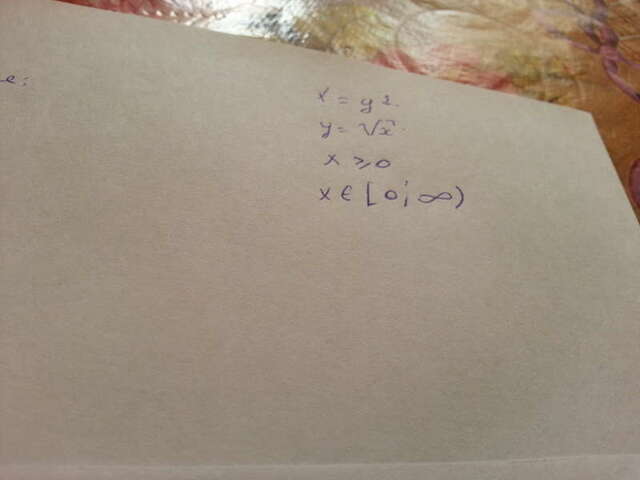 e:
x = y².
y = √x.
x ⩾ 0
x ∈ [0; ∞)